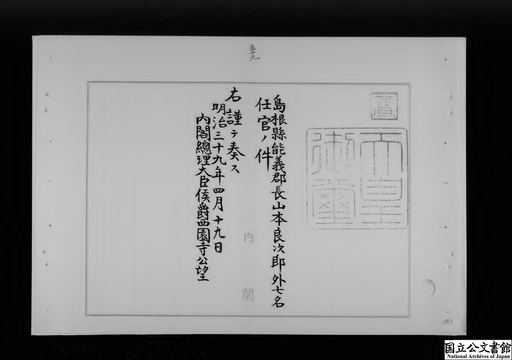 五十九
島根縣能義郡長山本良次郎外七名
任官ノ件
右謹テ奏ス
明治三十九年四月十九日
内閣總理大臣侯爵西園寺公望
内閣
天皇御璽
国立公文書館
National Archives of Japan